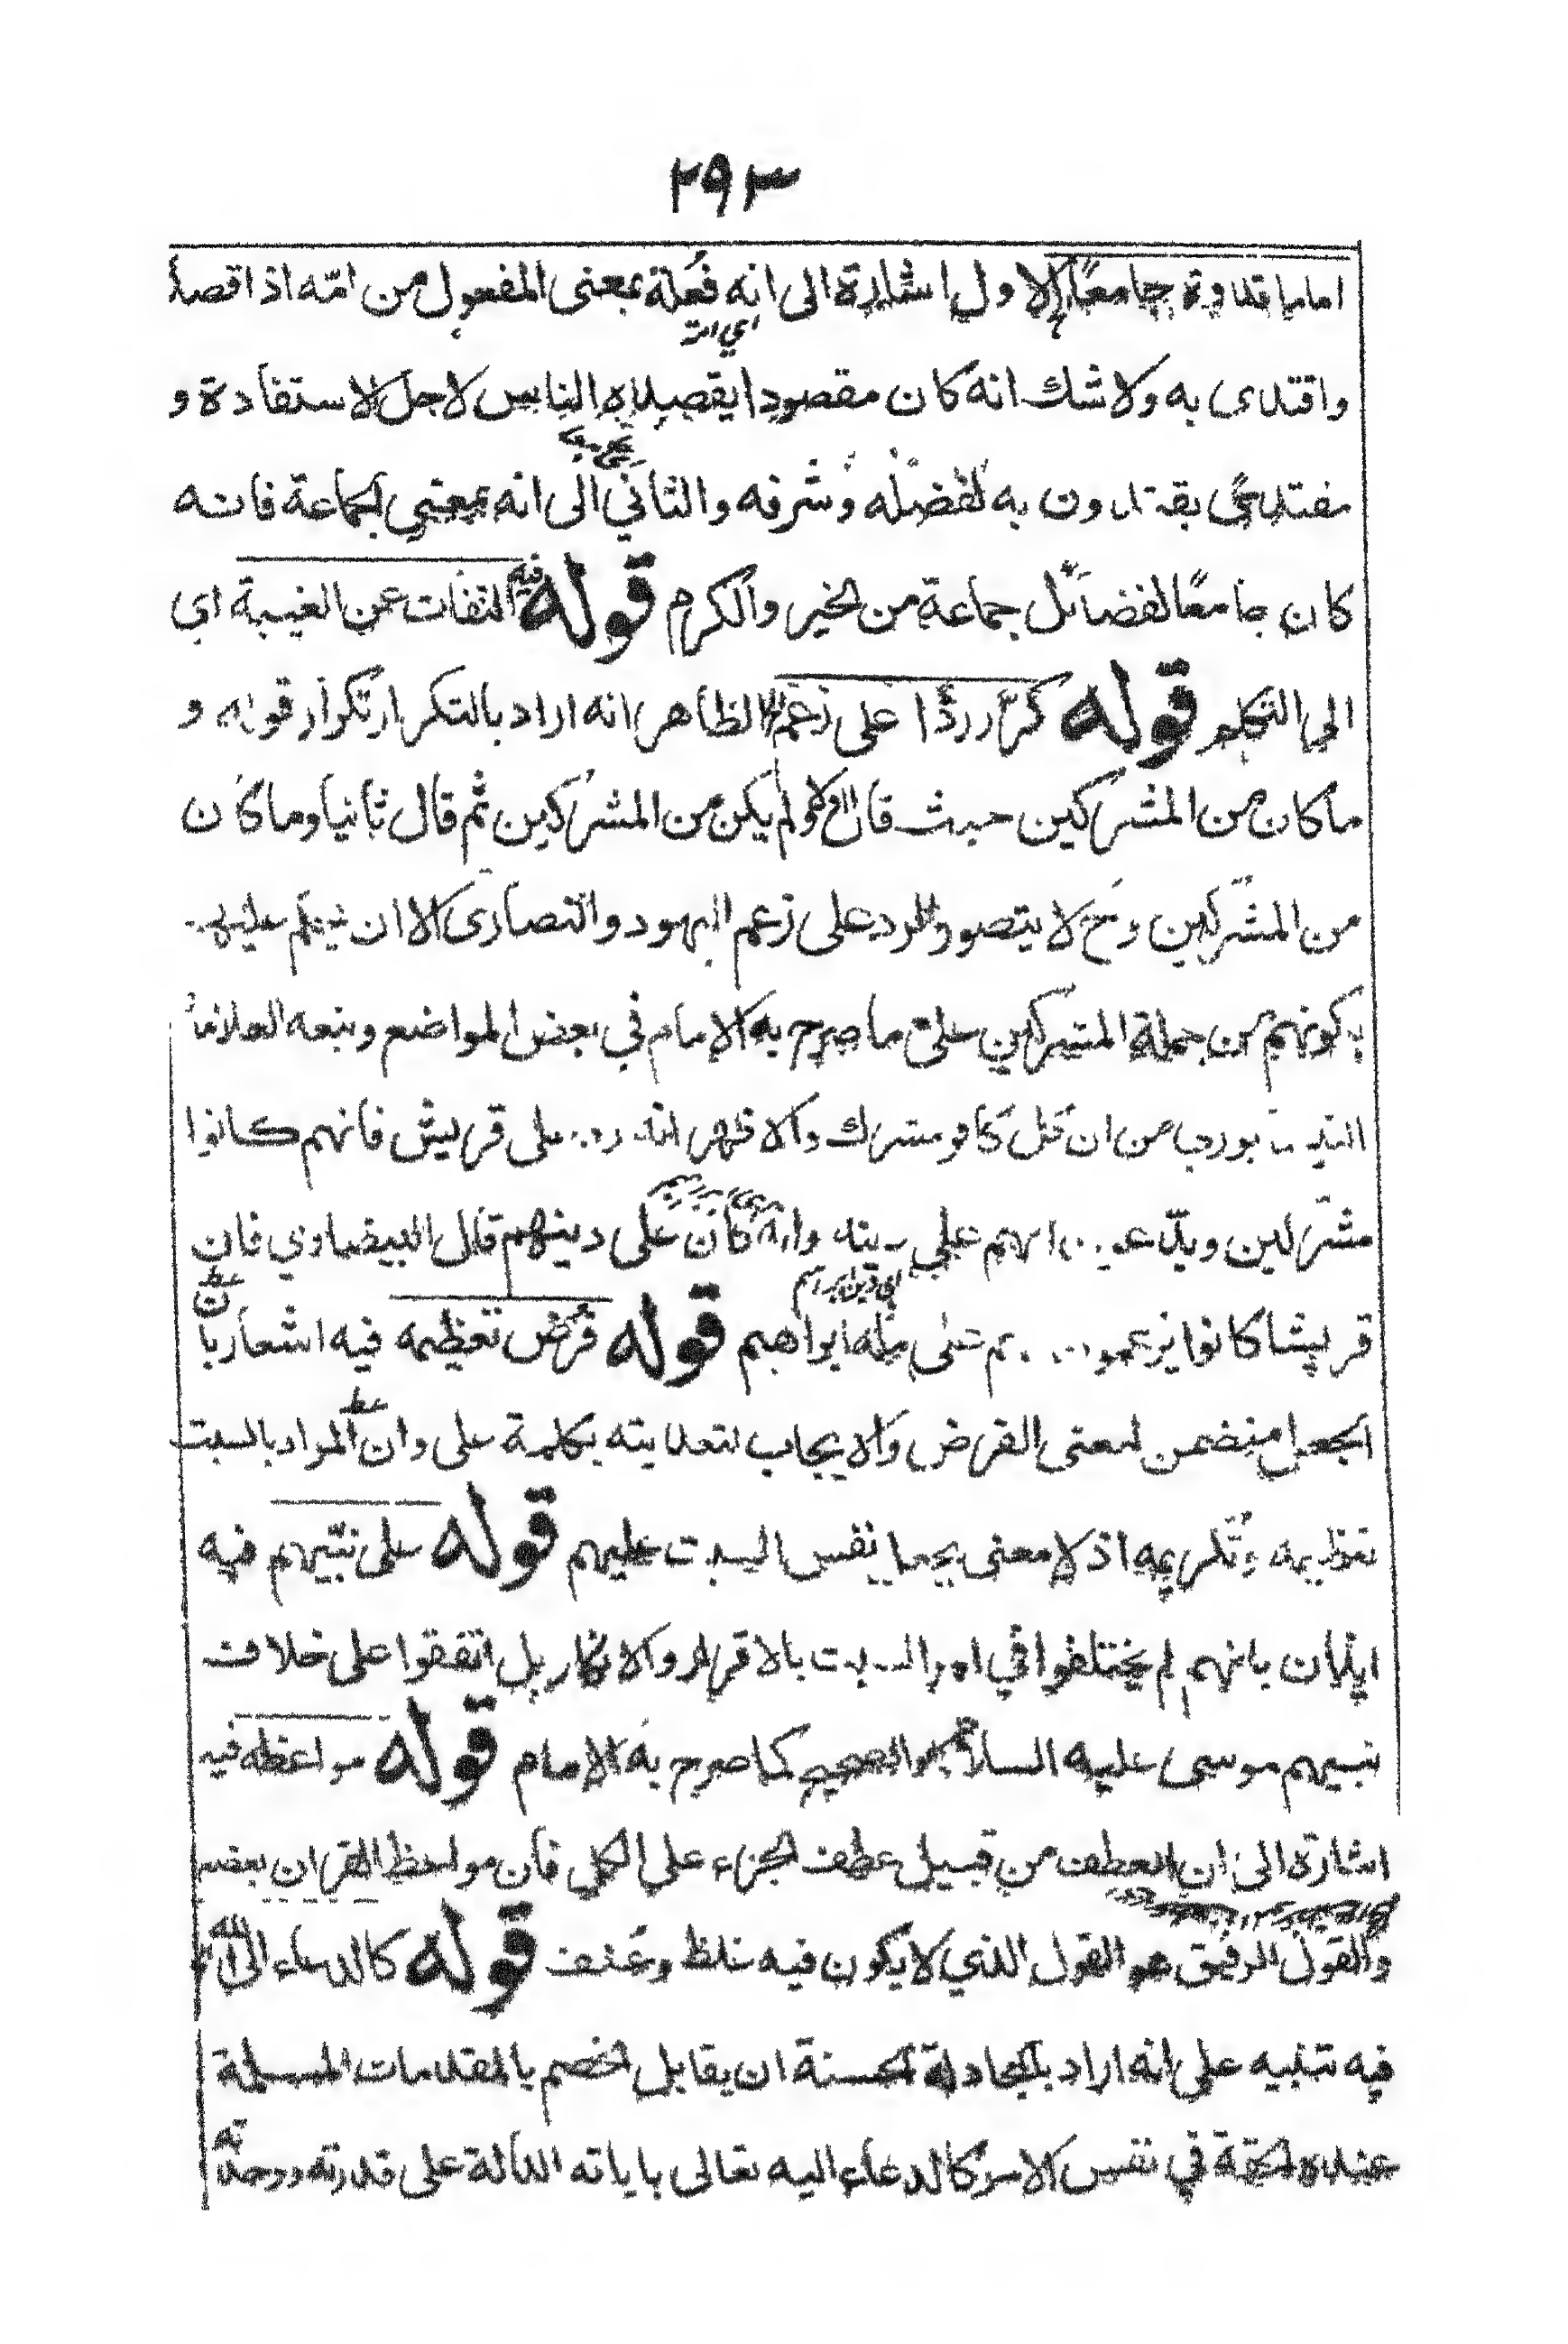 ٢٩٣
اماما قدوة جامعا الاول اشارة الى انه فُعلة بمعنى المفعول من امّه اذا قصد
واقتدى به ولا شك انه كان مقصودا يقصده الناس لاجل الاستفادة و
مقتدى يقتدون به لفضله وشرفه والثاني الى انه بمعنى الجماعة فانه
كان جامعًا لفضائل جماعة من الخير والكرم قوله فيه التفات عن الغيبة اي
الى التكلم قوله كرّر ردًّا على زعم الظاهر انه اراد بالتكرار تكرار قوله و
ما كان من المشركين حيث قال اولا ولم يكن من المشركين ثم قال ثانيا وما كان
من المشركين وح لا يتصور الرد على زعم اليهود والنصارى الا ان
بكونهم من جملة المشركين على ما صرح به الامام في بعض المواضع وتبعه العلامة
من ان كل كافر مشرك والاظهر انه رد على قريش فانهم كانوا
مشركين انهم على دينه وانه كان على دينهم قال البيضاوي فان
اي دين ابراهيم
قريشا كانوا يزعمون على ملة ابراهيم قوله فرض تعظيمه فيه اشعار بان
الجعل متضمن لمعنى الفرض والايجاب لتعديته بكلمة على وان المراد بالسبت
تعظيمه وتكريمه اذ لا معنى لجعل نفس السبت عليهم قوله على نبيهم فيه
ايذان بانهم لم يختلفوا في امر السبت بالاقرار والانكار بل اتفقوا على خلاف
نبيهم موسى عليه السلام وهو الصحيح كما صرح به الامام قوله مواعظه فيه
اشارة الى ان العطف من قبيل عطف الجزء على الكل فان مواعظ القران بعضه
والقول الرفيق هو القول الذي لا يكون فيه غلظ وعنف قوله كالدعاء الى الله
فيه تنبيه على انه اراد بالمجادلة الحسنة ان يقابل الخصم بالمقدمات المسلمة
عنده الحقة في نفس الامر كالدعاء اليه تعالى باياته الدالة على قدرته ووحدته